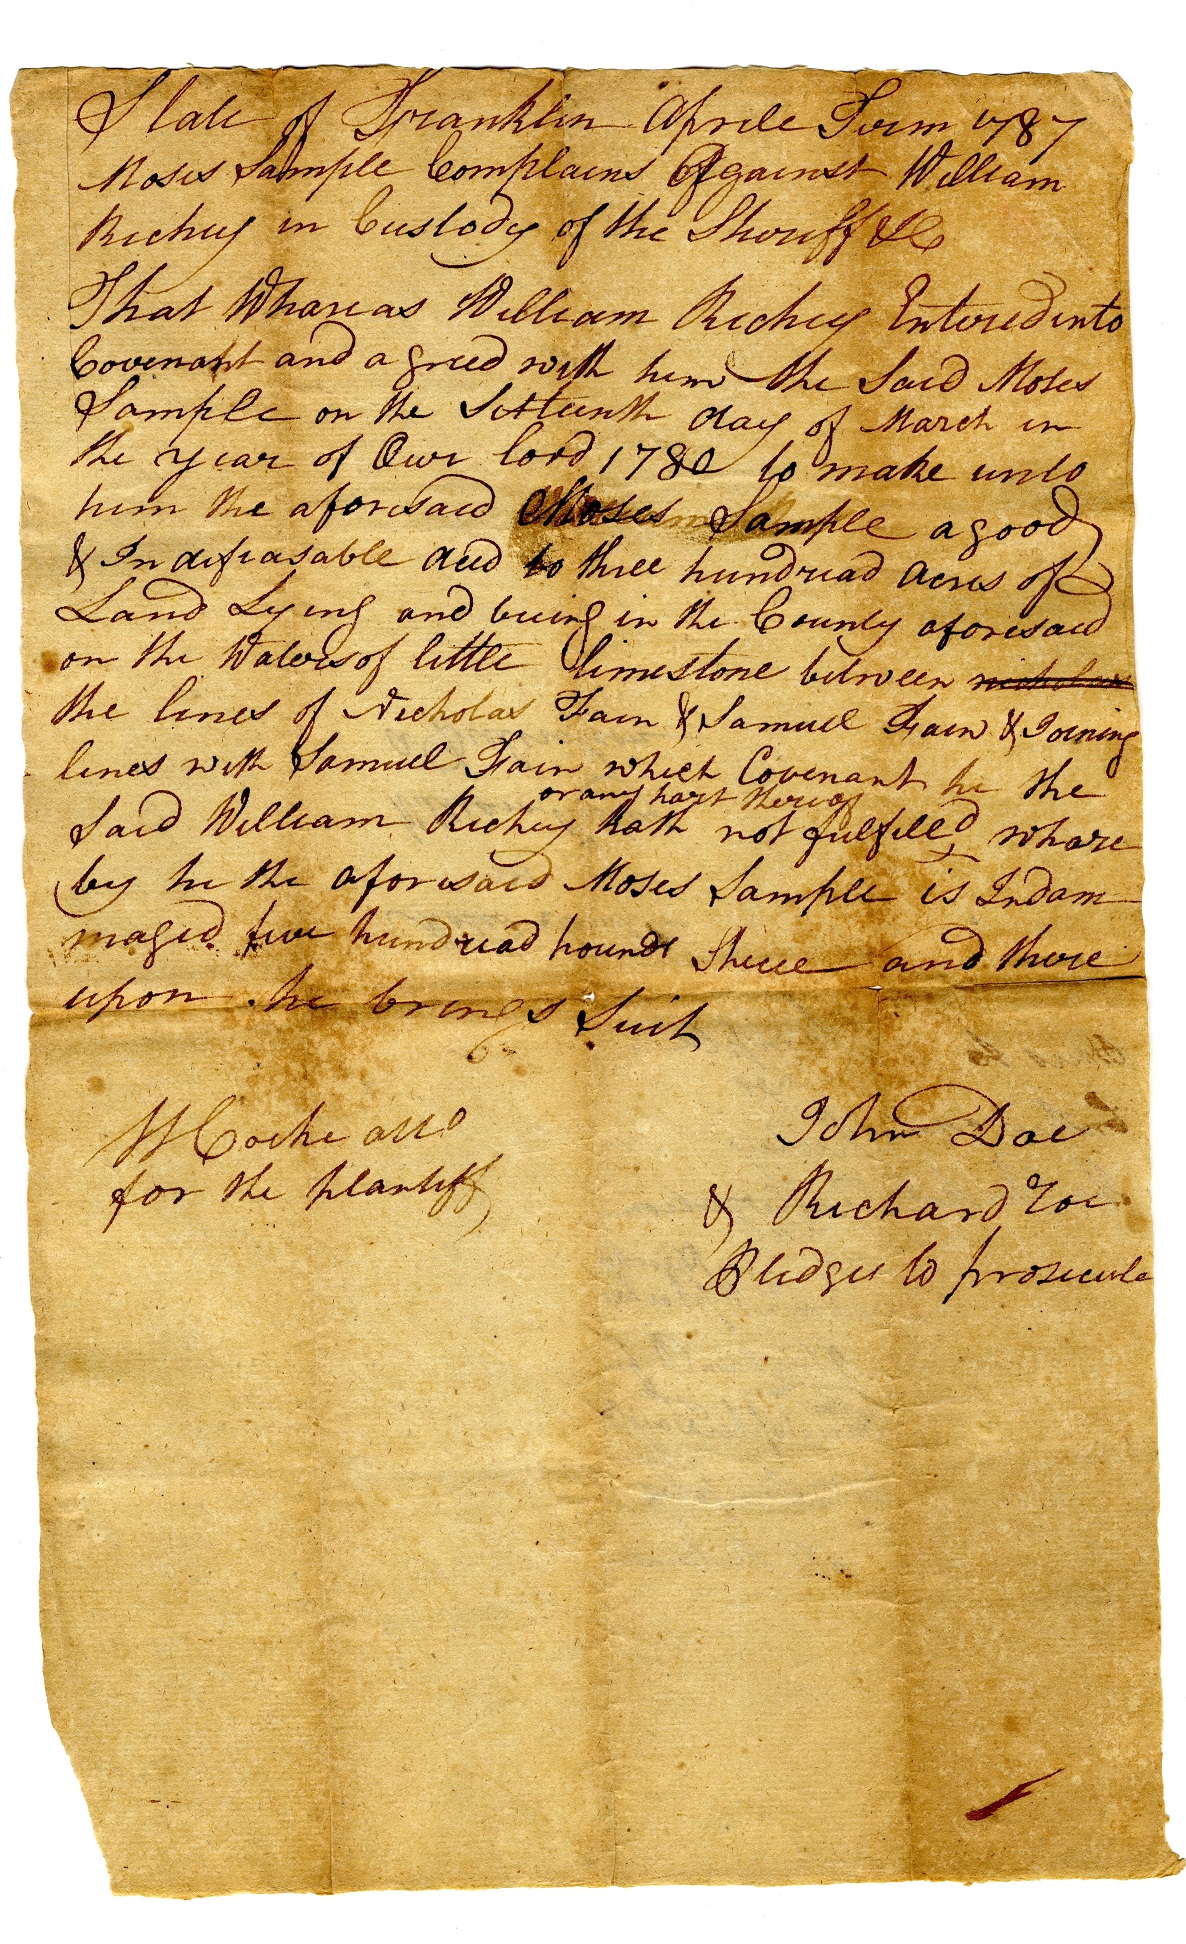 State of Franklin Aprile Term 1787
Moses Sample Complains Against William
Richey in Custody of the Sheriff &c
That Whareas William Richey Entered into
Covenant and agreed with him the Said Moses
Sample on the Sixteenth day of March in
the year of Our lord 1780 to make unto
him the aforesaid Moses Sample a good
& Indefeasable deed to three hundread acres of
Land Lying and being in the County aforesaid
on the Waters of little limestone between nicholas
the lines of Nicholas Fain & Samuel Fain & Joining
lines with Samuel Fain which Covenant he the
or any part thereof
Said William Richey hath not fulfilled whare
by he the aforesaid Moses Sample is Indam
maged five hundread pounds Specie and there
upon he brings Suit
W Cocke atto
for the plantiff
John Doe
& Richard Roe
Pledges to prosecute